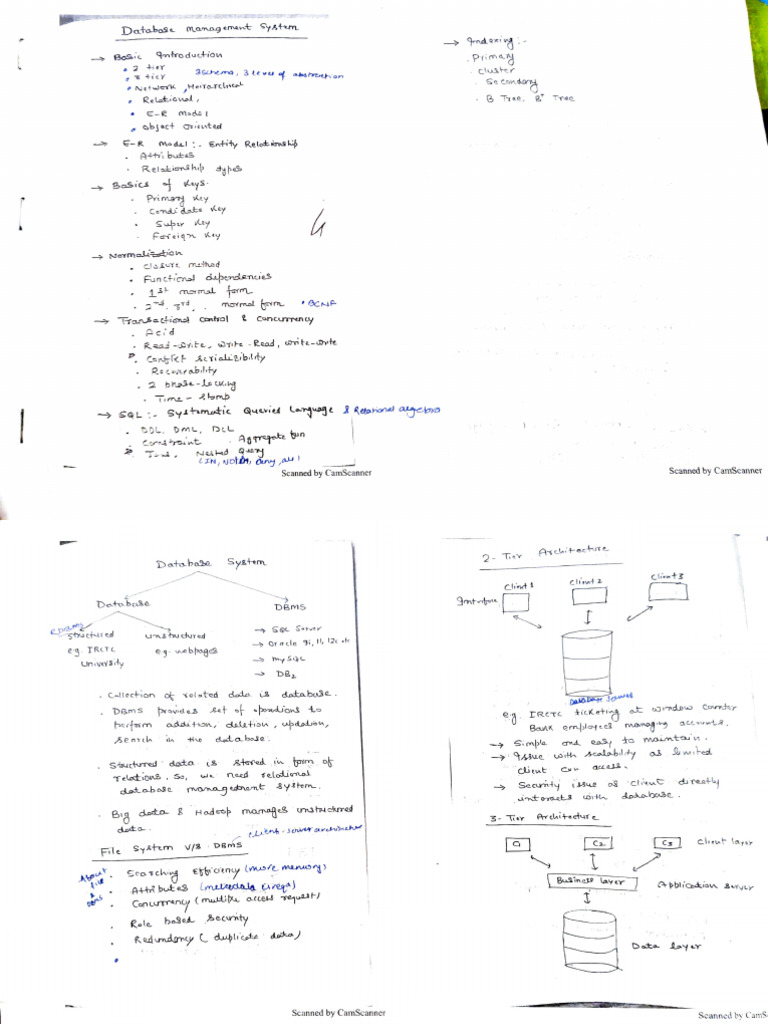 Database Management System
→ Basic Introduction
• 2 tier
• 3 tier 3 schema, 3 level of abstraction
• Network, Heirarchical
• Relational,
• E-R Model
• Object Oriented
→ E-R Model :- Entity Relationship
• Attributes
• Relationship types
→ Basics of Keys.
• Primary Key
• Candidate Key
• Super Key
• Foreign Key
→ Normalization
• Closure method
• Functional dependencies
• 1st normal form
• 2nd, 3rd . . normal form • BCNF
→ Transactional control & Concurrency
• Acid
• Read-write, write-Read, write-write
• Conflict serializibility
• Recoverability
• 2 phase-locking
• Time-stamp
→ SQL :- Systematic Queried Language & Relational algebra
• DDL, DML, DCL
• Constraint • Aggregate fun
• Nested Query
(IN, any, all)
Scanned by CamScanner
→ Indexing :-
• Primary
• Cluster
• Secondary
• B Tree, B+ Tree
Scanned by CamScanner
Database System
Database DBMS
structured unstructured
e.g. IRCTC e.g. webpages
University
→ SQL Server
→ Oracle 9i, 11, 12c etc
→ MySQL
→ DB2
• Collection of related data is database.
• DBMS provides set of operations to
perform addition, deletion, updation,
search in the database.
• Structured data is stored in form of
relations. So, we need relational
database management system.
• Big data & Hadoop manages unstructured
data.
client-server architecture
File System V/S DBMS
About
file
&
DBMS
• Searching Efficiency (more memory)
• Attributes (metadata &reqs)
• Concurrency (multiple access request)
• Role based security
• Redundancy (duplicate data)
Scanned by CamScanner
2-Tier Architecture
Client 1 Client 2 Client 3
Interface
Database server
e.g. IRCTC ticketing at window counter
Bank employees managing accounts.
→ Simple and easy to maintain.
→ Issue with scalability as limited
client can access.
→ Security issue as client directly
interacts with database.
3-Tier Architecture
C1 C2 C3 Client layer
Business layer Application server
Data layer
Scanned by CamS